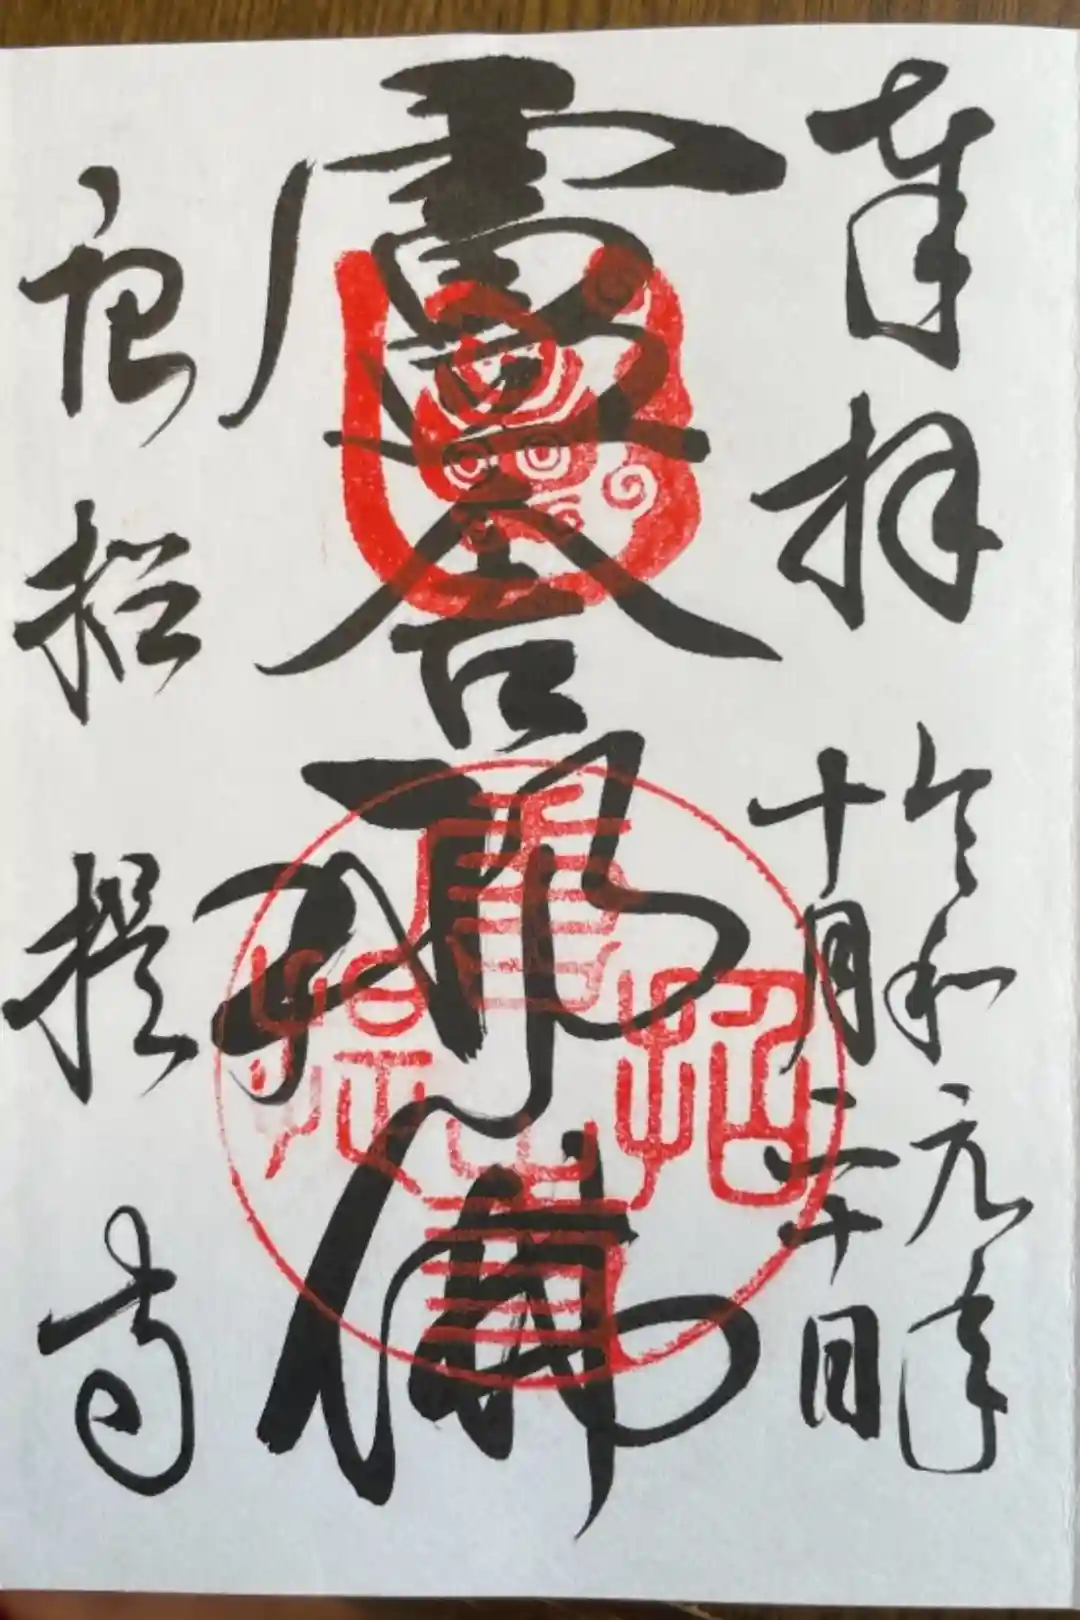 奉拝
令和元年
十月二十日
盧舎那佛
唐招提寺